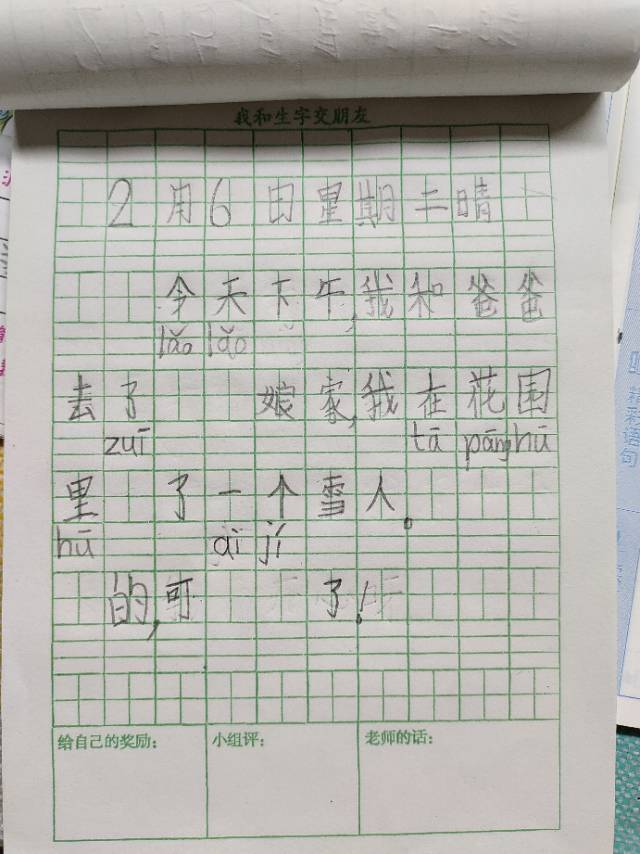 我和生字交朋友
2月6日星期二晴
今天下午,我和爸爸
lǎo lǎo
去了 娘家,我在花园
zuī tā pāng hū
里 了一个雪人。
hū ài jí
的,可 了!
给自己的奖励: 小组评: 老师的话:
精彩语句